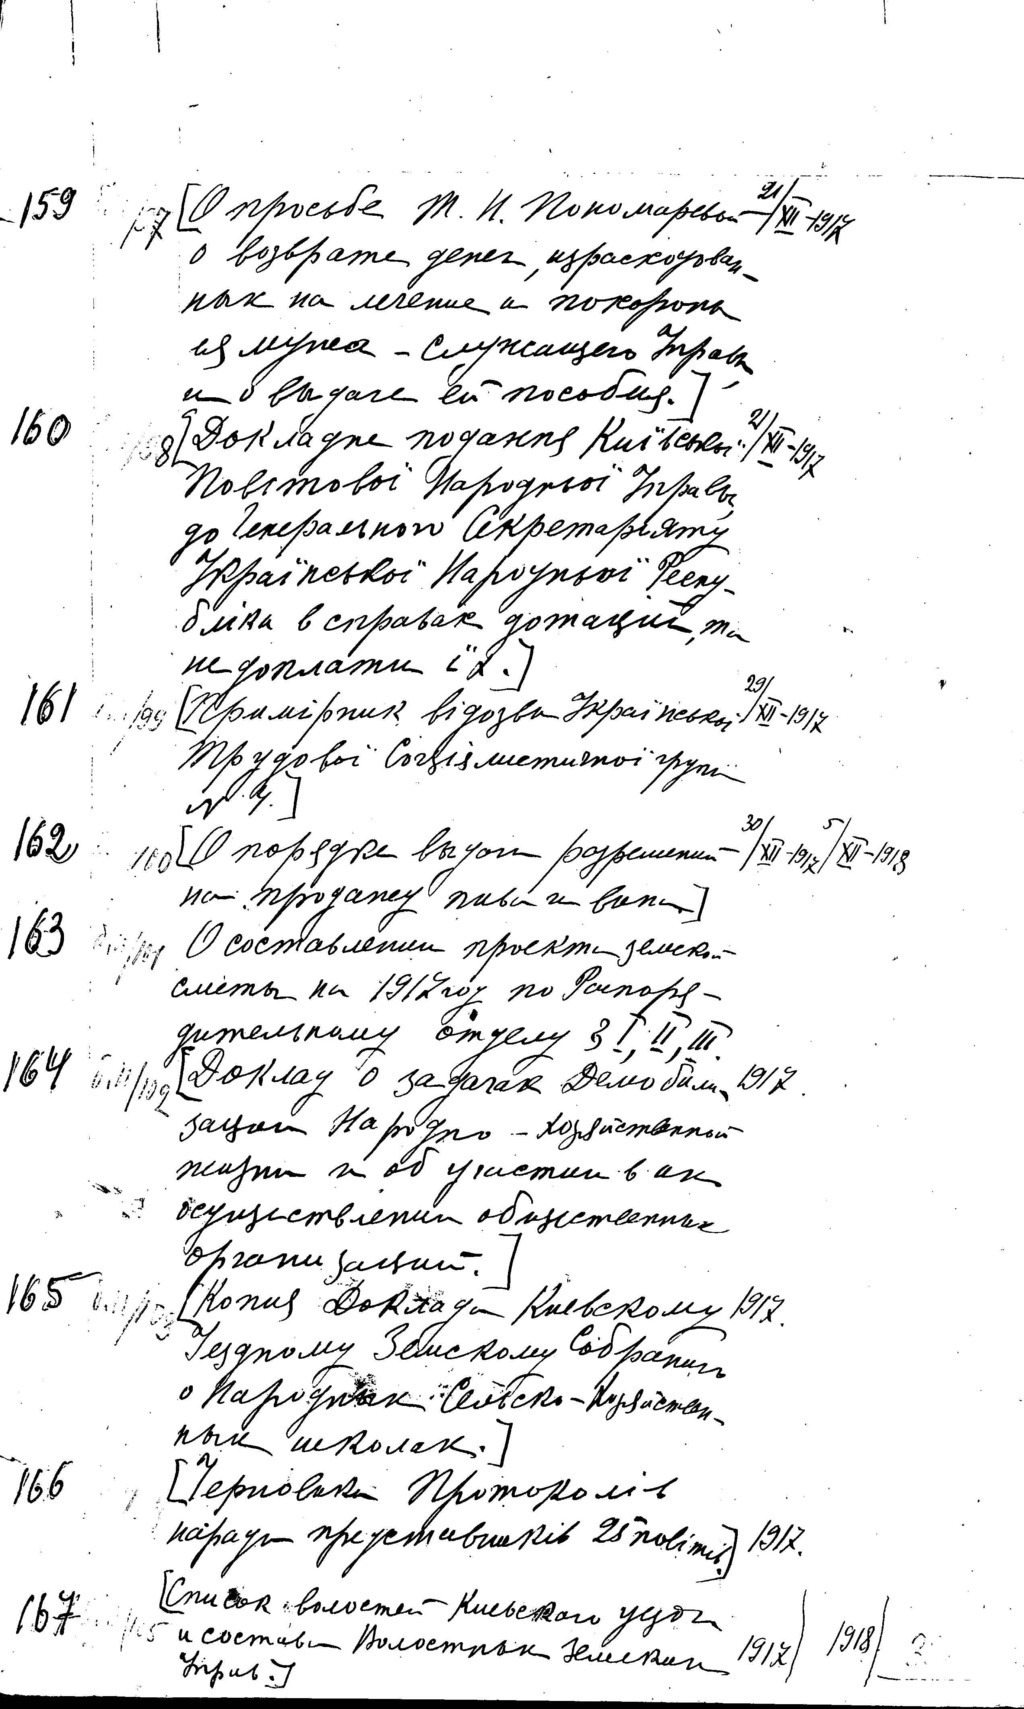 159 [О просьбе Т. И. Пономаревой 21/XII-1917
о возврате денег, израсходован-
ных на лечение и похороны
ея мужа - служащего Управы
и о выдаче ей пособия.]
160 [Докладне подання Київської 21/XII-1917
Повітової Народньої Управы
до Генерального Секретаріяту
Української Народньої Респу-
бліки в справах дотаций, та
недоплати їх.]
161 /99 [Примірник відозви Української 29/XII-1917
Трудової Соціялистичної групи
№ 7.]
162 100 [О порядке выдачи разрешений 30/XII-1917/5/XII-1918
на продажу пива и вина]
163 /101 О составлении проекта земской
сметы на 1917 год по Распоря-
дительному отделу § I, II, III.
164 /102 [Доклад о задачах Демобили- 1917.
зации Народно-хозяйственной
жизни и об участии в их
осуществлении общественных
организаций.]
165 /103 [Копия Доклада Киевскому 1917.
Уездному Земскому Собранию
о Народных Сельско-Хозяйствен-
ных школах.]
166 [Черновики Протоколів
наради представників 25 повітів.] 1917.
167 [Список волостей Киевского уезда
и состава Волостных Земских 1917) 1918)
Управ.]